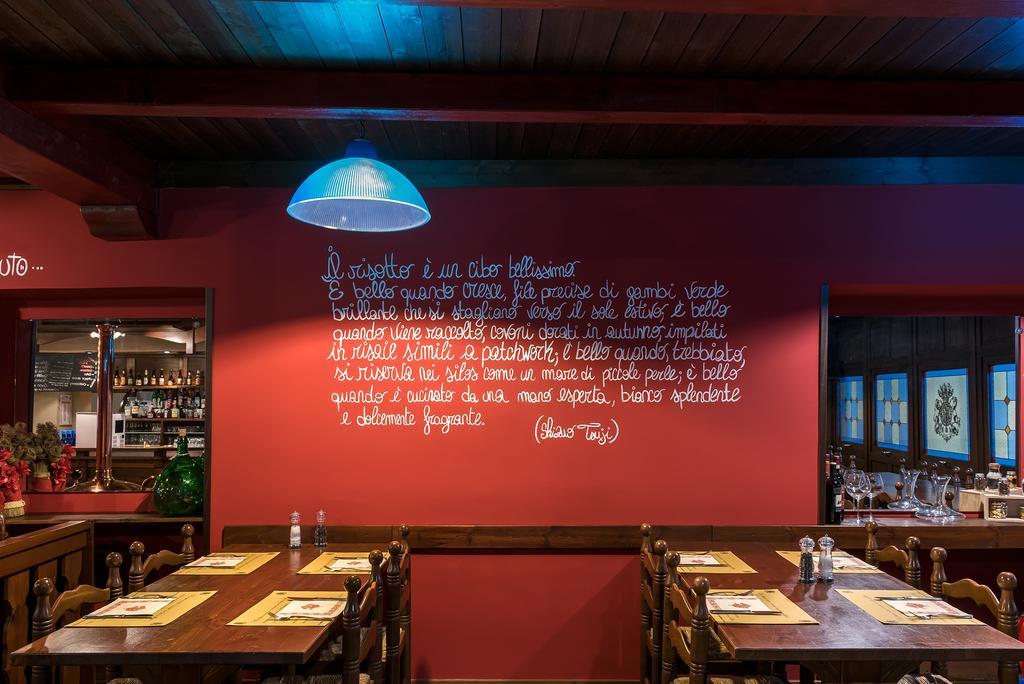 uto...
Il risotto è un cibo bellissimo
È bello quando cresce, file precise di gambi verde
brillante che si stagliano verso il sole estivo, è bello
quando viene raccolto, covoni dorati in autunno, impilati
in risaie simili a patchwork; è bello quando, trebbiato,
si riversa nei silos come un mare di piccole perle; è bello
quando è cucinato da una mano esperta, bianco splendente
e dolcemente fragrante.
(Shizuo Tsuji)